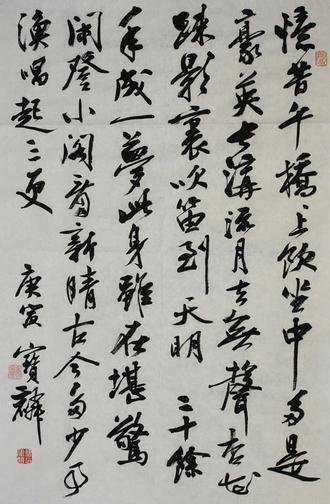 憶昔午橋上飲坐中多是
豪英長溝流月去無聲杏花
疎影裏吹笛到天明二十餘
年成一夢此身雖在堪驚
閑登小閣看新晴古今多少事
漁唱起三更
庚寅寶麟